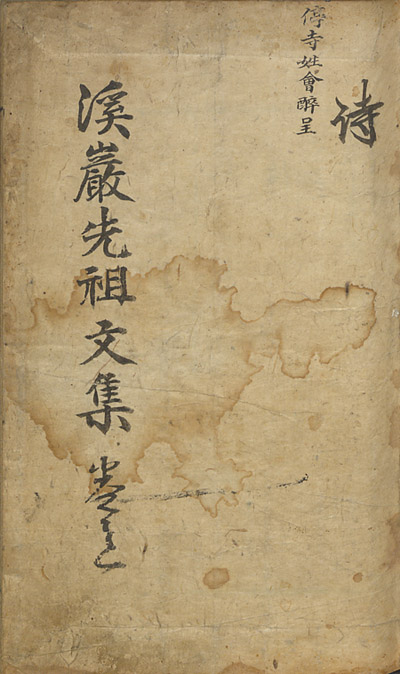 詩
停寺姓會醉呈
溪巖先祖文集